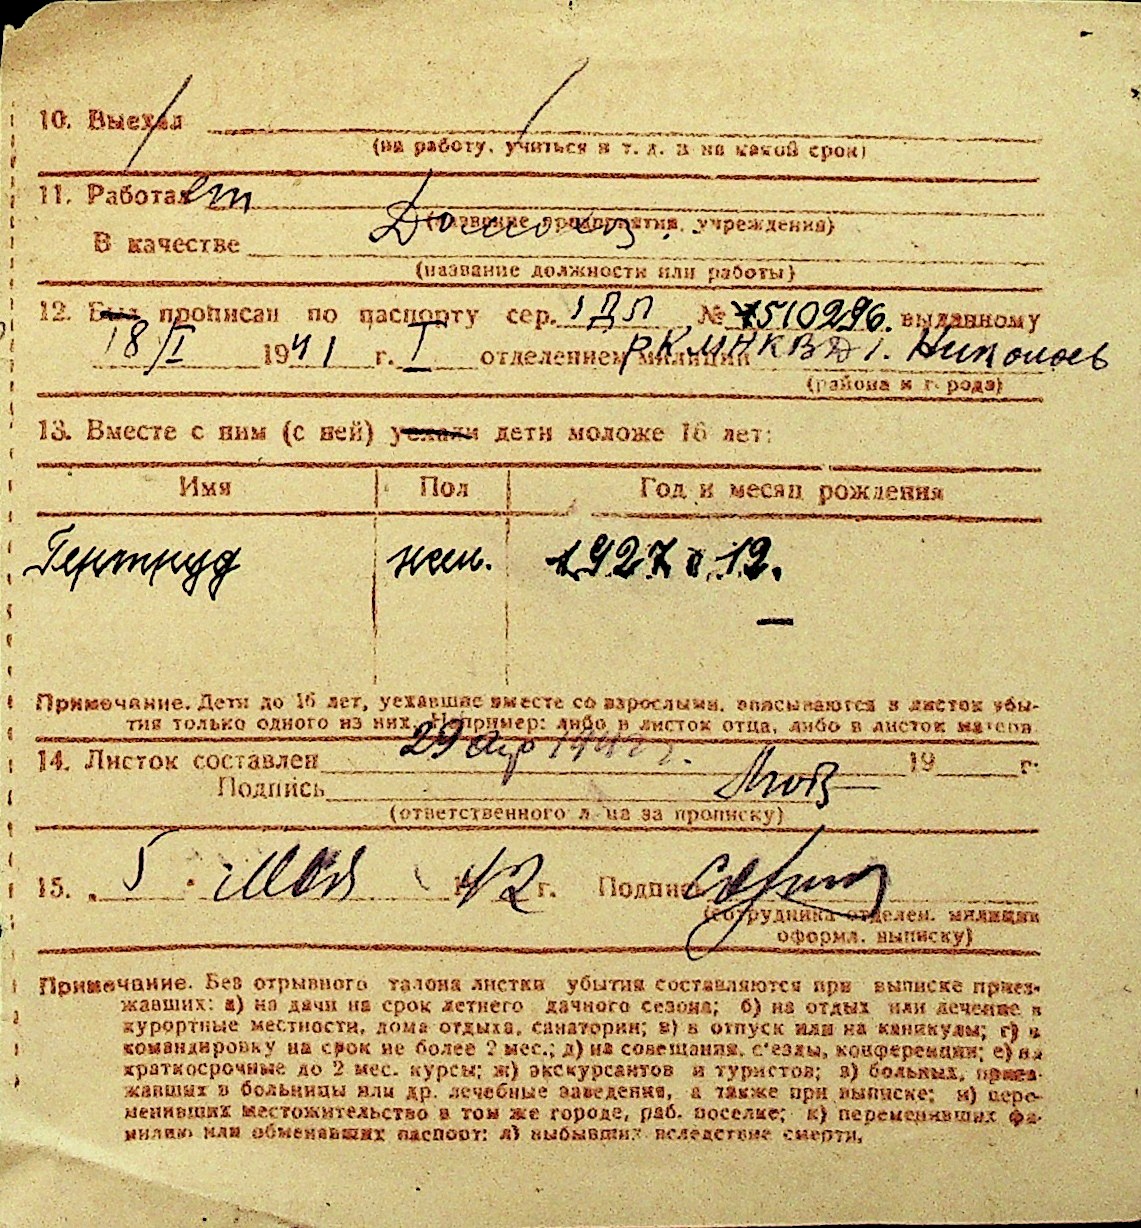 10. Выехал
(на работу, учиться и т. д. и на какой срок)
11. Работает
(название предприятия, учреждения)
В качестве Домохоз.
(название должности или работы)
12. Был прописан по паспорту сер. 1 ДЛ № 510296. выданному
18/I 1941 г. I отделением милиции РКМНКВД г. Николаев
(района и города)
13. Вместе с ним (с ней) уехали дети моложе 16 лет:
Имя Пол Год и месяц рождения
Гертруд жен. 1927 г. 12.
Примечание. Дети до 16 лет, уехавшие вместе со взрослыми, вписываются в листок убы-
тия только одного из них. Например: либо в листок отца, либо в листок матери.
14. Листок составлен 29 апр 1942 г. 19 г.
Подпись
(ответственного лица за прописку)
15. „ 5 " мая 1942 г. Подпись
(сотрудника отделен. милиции
оформл. выписку)
Примечание. Без отрывного талона листки убытия составляются при выписке приез-
жавших: а) на дачи на срок летнего дачного сезона; б) на отдых или лечение в
курортные местности, дома отдыха, санатории; в) в отпуск или на каникулы; г) в
командировку на срок не более 2 мес.; д) на совещания, с'езды, конференции; е) на
краткосрочные до 2 мес. курсы; ж) экскурсантов и туристов; з) больных, приез-
жавших в больницы или др. лечебные заведения, а также при выписке; и) пере-
менивших местожительство в том же городе, раб. поселке; к) переменивших фа-
милию или обменявших паспорт; л) выбывших вследствие смерти.